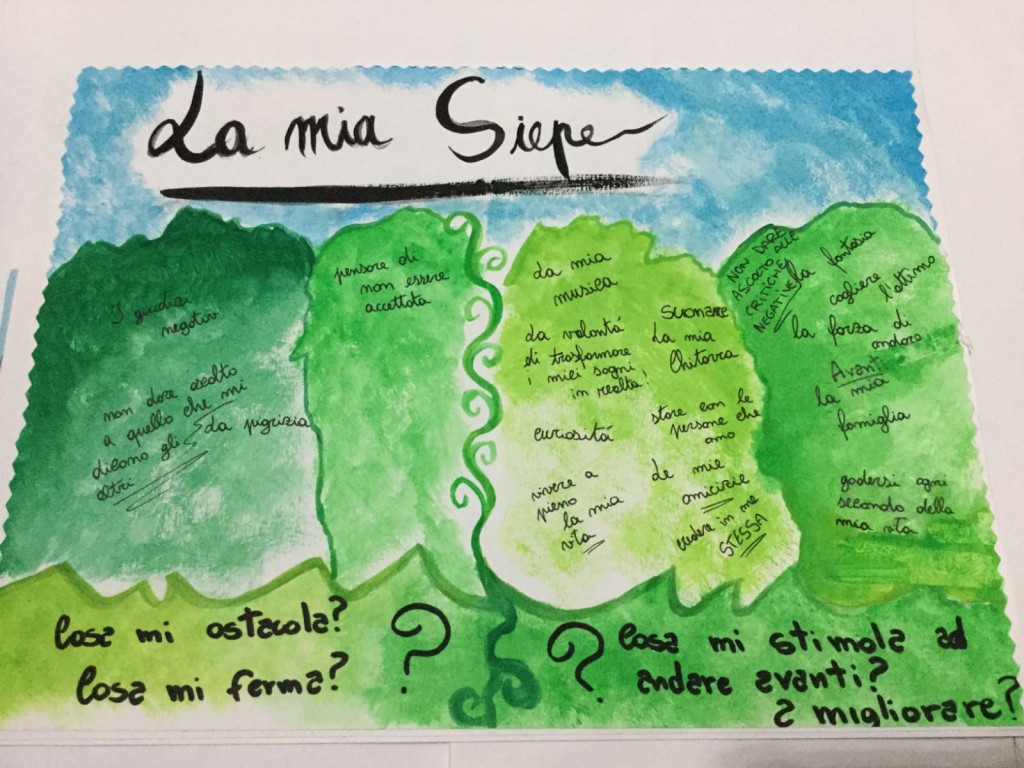 La mia Siepe
I giudizi
negativi
non dare ascolto
a quello che mi
dicono gli
altri
La pigrizia
pensare di
non essere
accettata
La mia
musica
La volontá
di trasformare
i miei sogni
in realtà!
curiositá
vivere a
pieno
la mia
vita
suonare
La mia
Chitarra
stare con le
persone che
amo
Le mie
amicizie
credere in me
STESSA
NON DARE
ASCOLTO ALLE
CRITICHE
NEGATIVE
la fantasia
cogliere
l'attimo
la forza di
andare
Avanti
la mia
famiglia
godersi ogni
secondo della
mia vita
Cosa mi ostacola?
Cosa mi ferma?
?
?
Cosa mi stimola ad
andare avanti?
a migliorare?